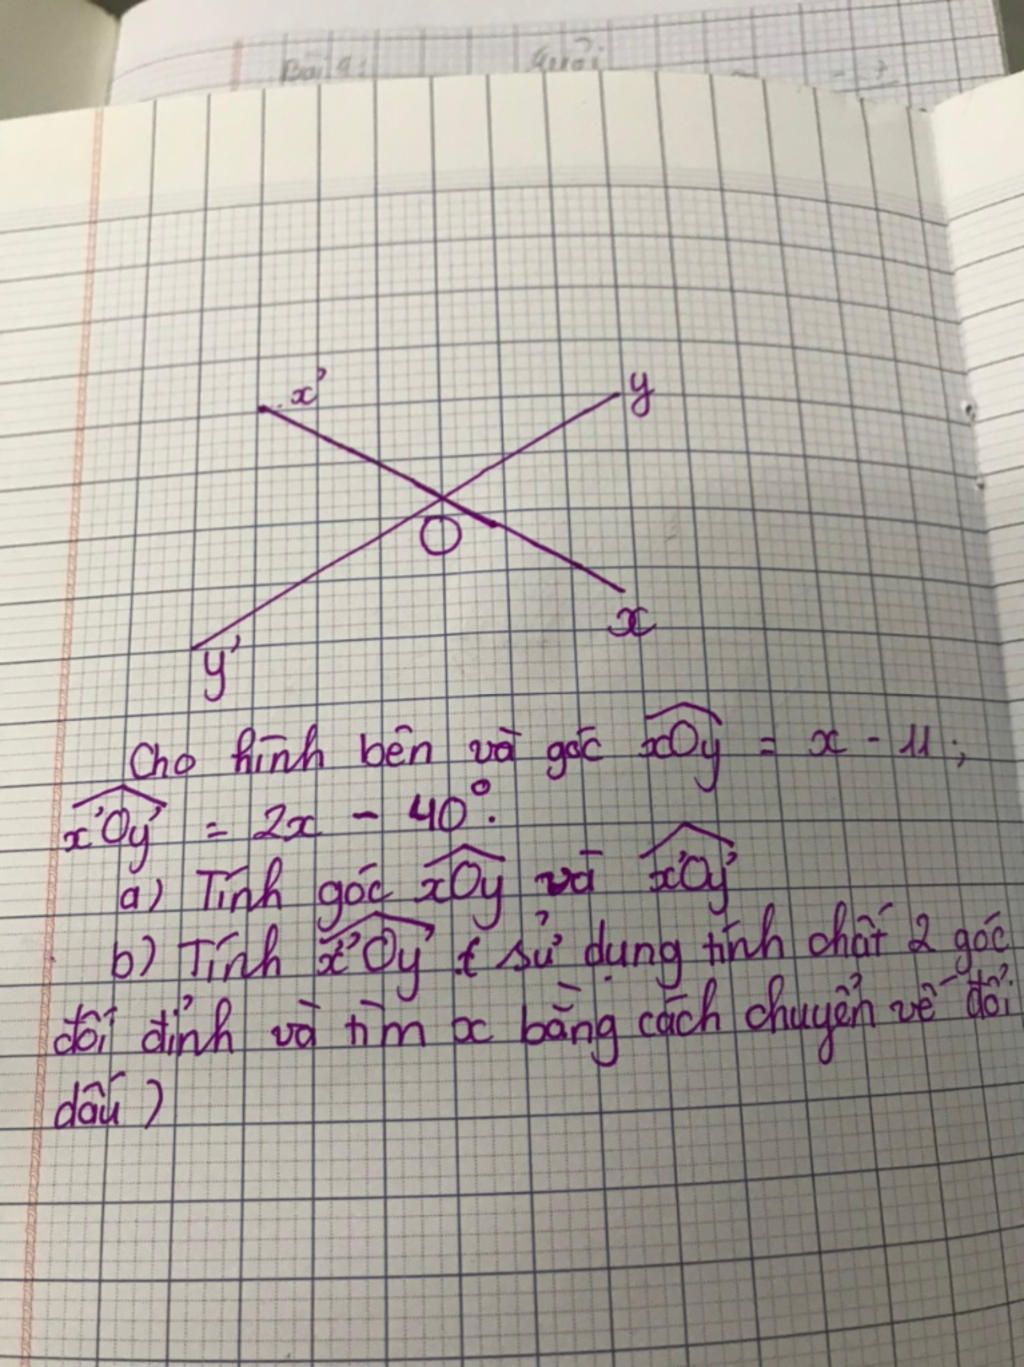 Bài 4:
x'
y
O
x
y'
Cho hình bên và góc xOy = x - 11;
x'Oy' = 2x - 40°.
a) Tính góc xOy và x'Oy'
b) Tính x'Oy ( sử dụng tính chất 2 góc
đối đỉnh và tìm x bằng cách chuyển vế đổi
dấu )